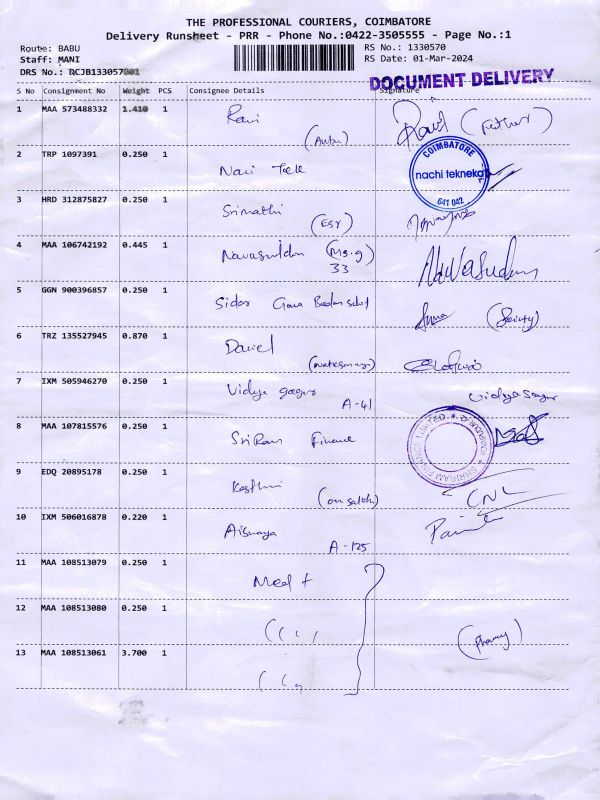 THE PROFESSIONAL COURIERS, COIMBATORE
Delivery Runsheet - PRR - Phone No.:0422-3505555 - Page No.:1
Route: BABU
RS No.: 1330570
Staff: MANI
RS Date: 01-Mar-2024
DRS No.: RCJB133057001
DOCUMENT DELIVERY
S No Consignment No Weight PCS Consignee Details Signature
1 MAA 573488332 1.410 1 Ravi
(Father)
2 TRP 1097391 0.250 1
COIMBATORE
nachi tekneka
641 042
3 HRD 312875827 0.250 1 Srimathi
4 MAA 106742192 0.445 1
33
5 GGN 900396857 0.250 1
6 TRZ 135527945 0.870 1 Daniel
7 IXM 505946270 0.250 1 Vidya Sagar
A-41
Vidya Sagar
8 MAA 107815576 0.250 1 Sri Ram Finance
SHRIRAM FINANCE LIMITED
9 EDQ 20895178 0.250 1
10 IXM 506016878 0.220 1
A-125
11 MAA 108513079 0.250 1 Med +
12 MAA 108513080 0.250 1
13 MAA 108513061 3.700 1